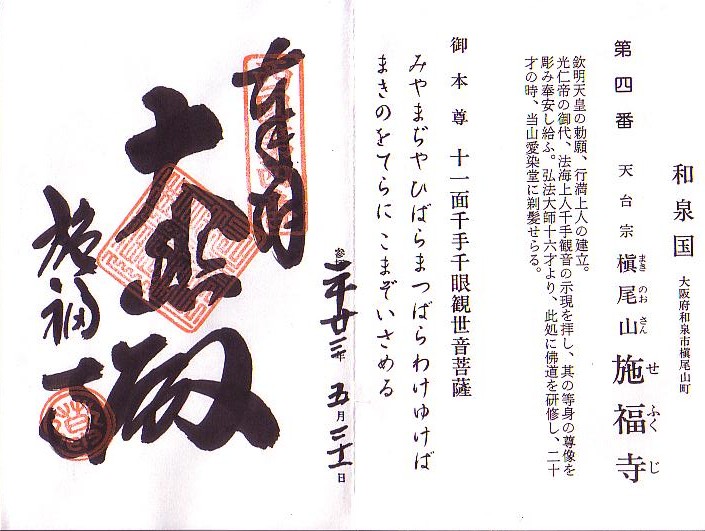 和泉国 大阪府和泉市槇尾山町
第四番 天台宗 槇尾山 施福寺
まき のお さん せ ふく じ
欽明天皇の勅願、行満上人の建立。
光仁帝の御代、法海上人千手観音の示現を拝し、其の等身の尊像を
彫み奉安し給ふ。弘法大師十六才より、此処に佛道を研修し、二十
才の時、当山愛染堂に剃髪せらる。
御本尊 十一面千手千眼観世音菩薩
みやまぢやひばらまつばらわけゆけば
まきのをてらにこまぞいさめる
二十廿三年 五月三十一日
奉拝
大悲殿
施福寺